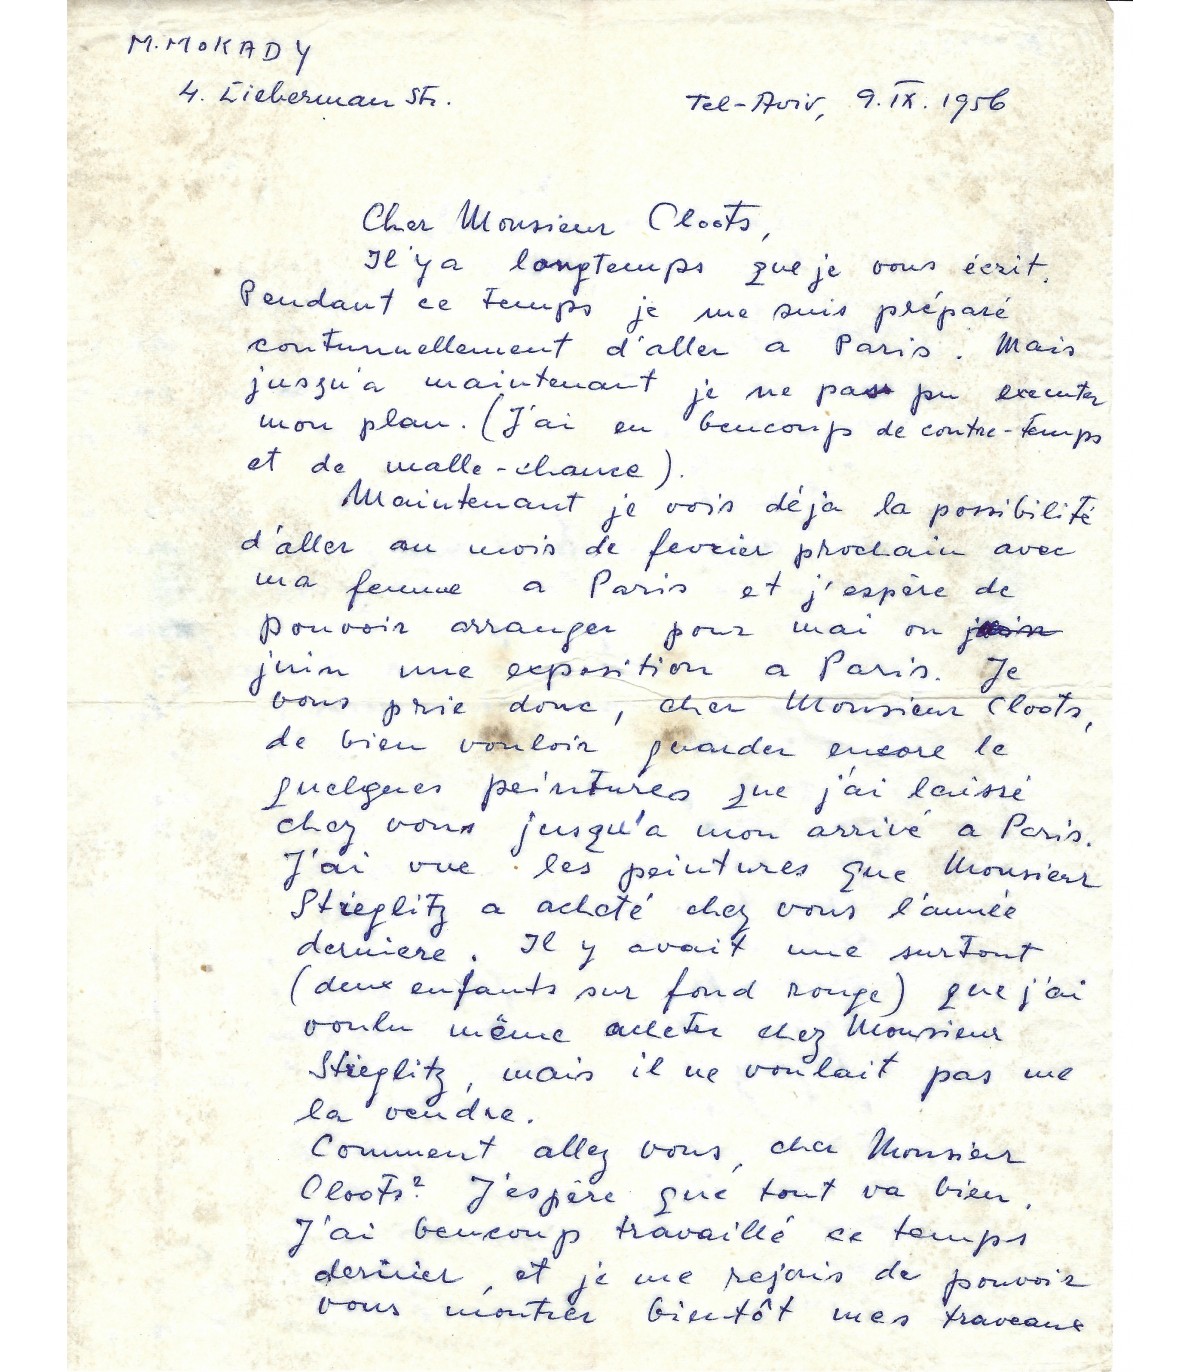 M. MOKADY
4. Lieberman Str.
Tel-Aviv, 9. IX. 1956
Cher Monsieur Cloots,
Il y a longtemps que je vous écrit.
Pendant ce temps je me suis préparé
contunuellement d'aller a Paris. Mais
jusqu'a maintenant je ne pas pu executer
mon plan. (J'ai eu beucoups de contre-temps
et de malle-chance).
Maintenant je vois déja la possibilité
d'aller au mois de fevrier prochain avec
ma femme a Paris et j'espère de
pouvoir arranger pour mai ou juin
juin une exposition a Paris. Je
vous prie donc, cher Monsieur Cloots,
de bien vouloir guarder encore le
quelques peintures que j'ai laissé
chez vous jusqu'a mon arrivé a Paris.
J'ai vue les peintures que Monsieur
Stieglitz a acheté chez vous l'année
derniere. Il y avait une surtout
(deux enfants sur fond rouge) que j'ai
voulu même acheter chez Monsieur
Stieglitz, mais il ne voulait pas me
la vendre.
Comment allez vous, cher Monsieur
Cloots? J'espère que tout va bien.
J'ai beucoup travaillé ce temps
dernier, et je me rejois de pouvoir
vous montrer bientôt mes traveaux